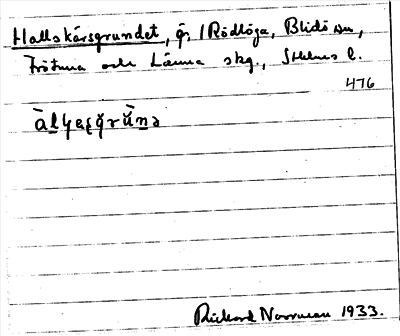 Hallskärsgrundet, ö, /Rödlöga, Blidö sn,
Frötuna och Länna skg., Sthlms l.
476
Richard Norrman 1933.